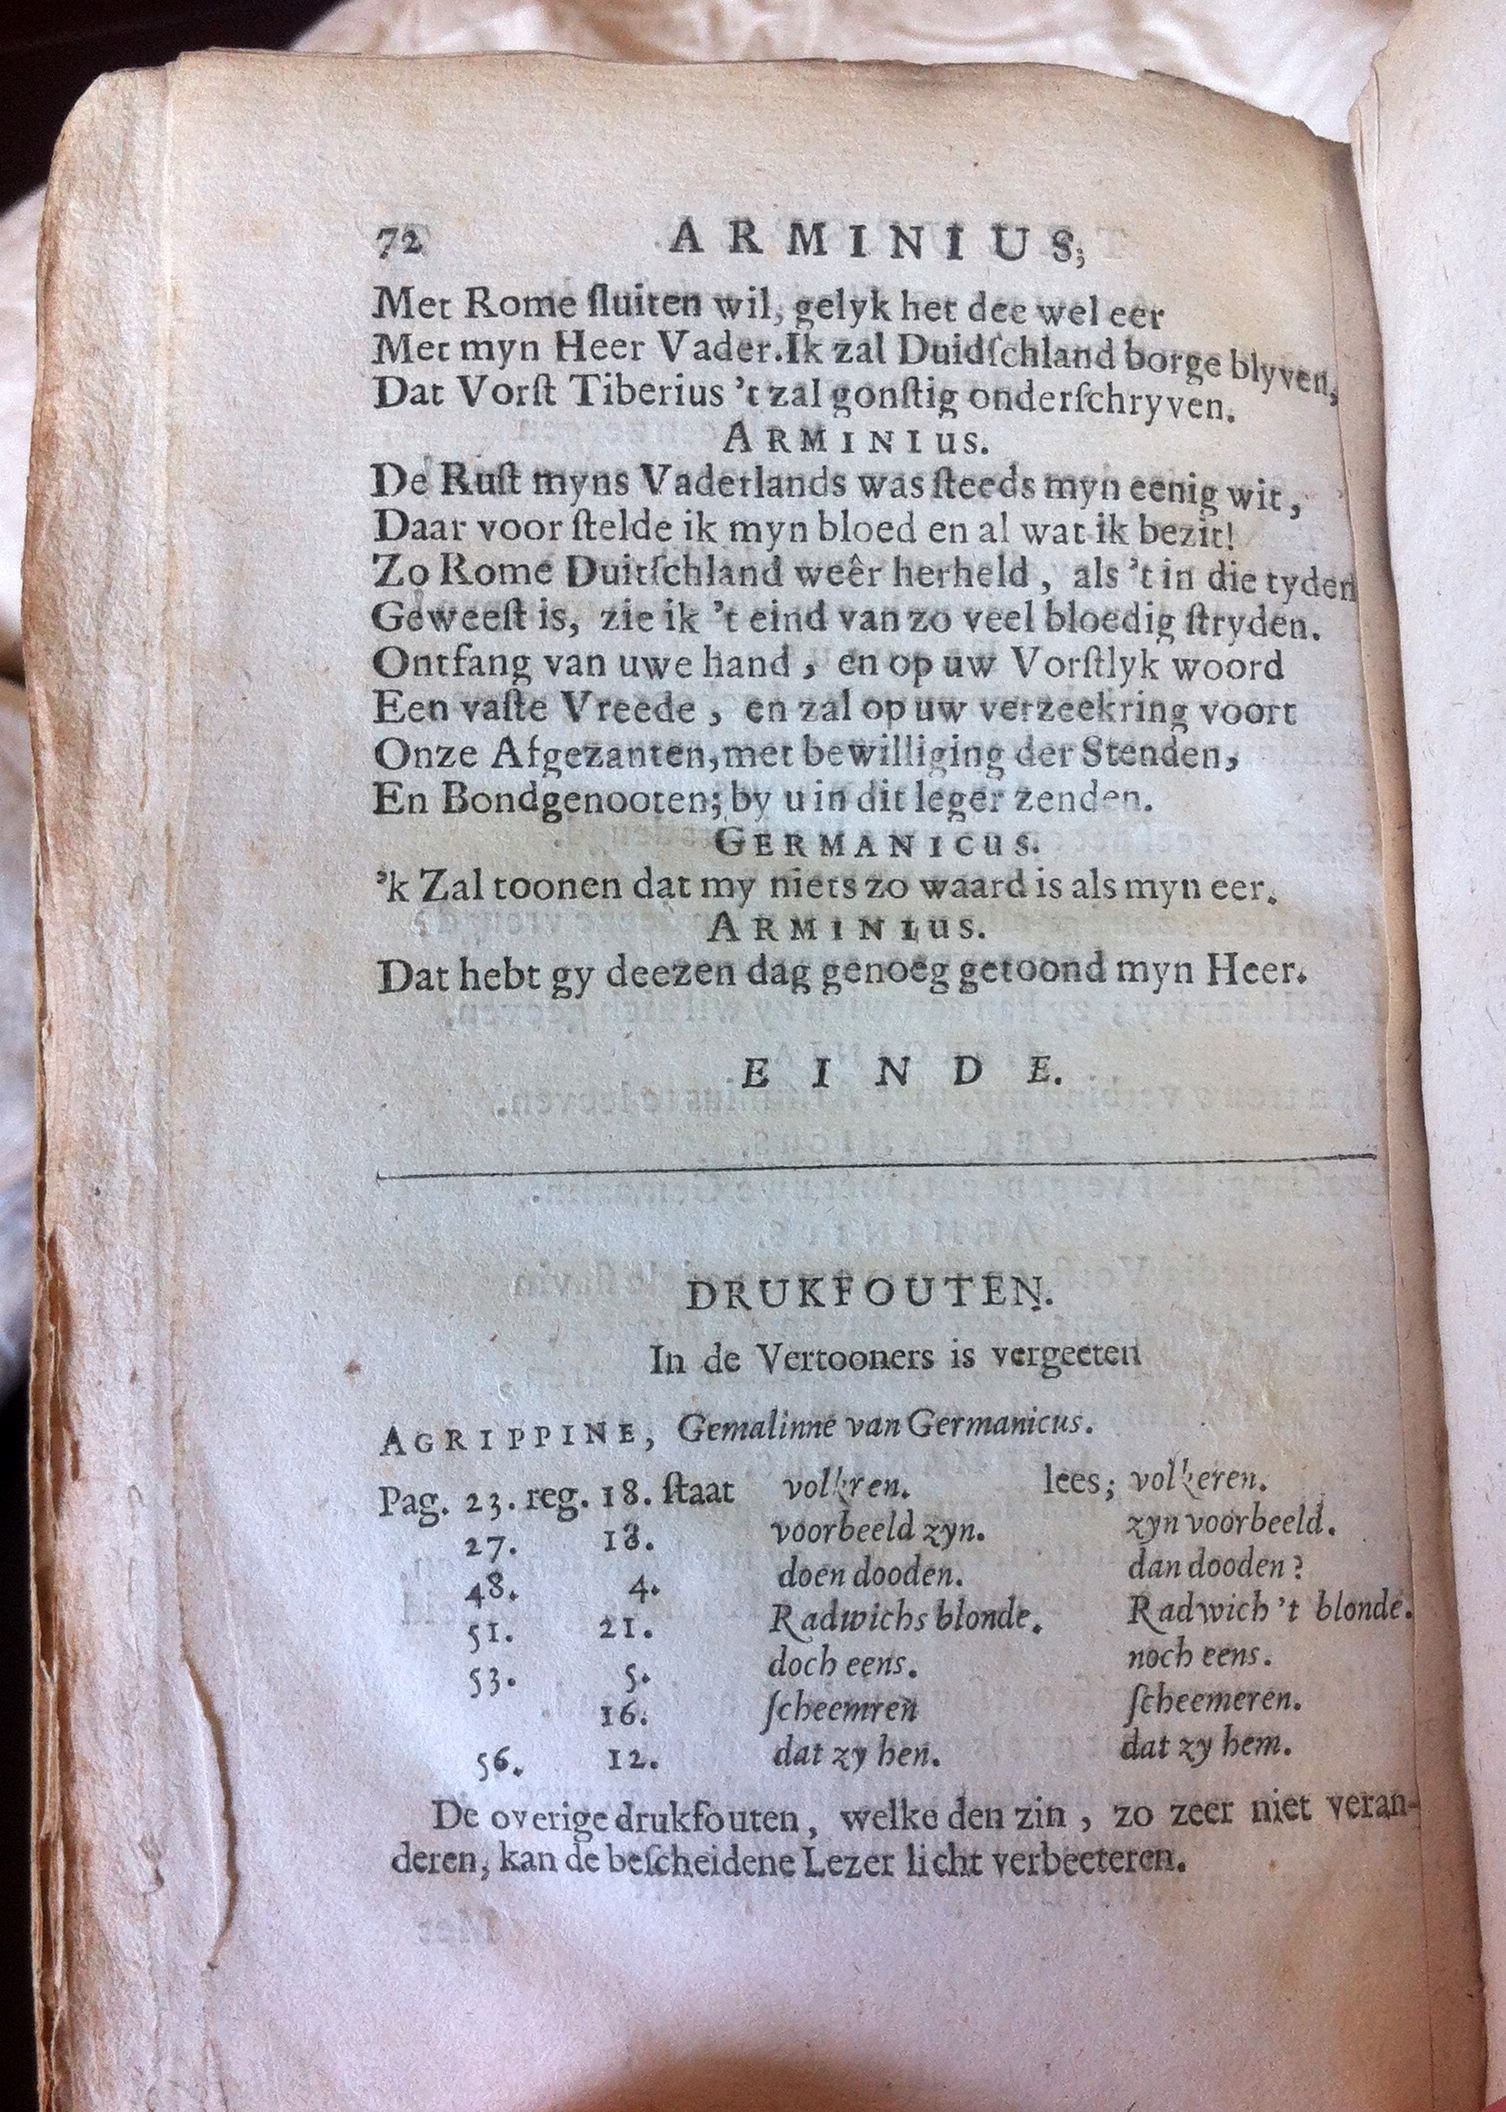 72 ARMINIUS;
Met Rome ſluiten wil, gelyk het dee wel eer
Met myn Heer Vader. Ik zal Duidſchland borge blyven,
Dat Vorſt Tiberius 't zal gonſtig onderſchryven.
ARMINIUS.
De Ruſt myns Vaderlands was ſteeds myn eenig wit,
Daar voor ſtelde ik myn bloed en al wat ik bezit!
Zo Rome Duitſchland weêr herheld, als 't in die tyden
Geweeſt is, zie ik 't eind van zo veel bloedig ſtryden.
Ontfang van uwe hand, en op uw Vorſtlyk woord
Een vaſte Vreede, en zal op uw verzeekring voort
Onze Afgezanten, met bewilliging der Stenden,
En Bondgenooten; by u in dit leger zenden.
GERMANICUS.
'k Zal toonen dat my niets zo waard is als myn eer.
ARMINIUS.
Dat hebt gy deezen dag genoeg getoond myn Heer.
EINDE.
DRUKFOUTEN.
In de Vertooners is vergeeten
AGRIPPINE, Gemalinne van Germanicus.
Pag. 23. reg. 18. ſtaat volkren. lees; volkeren.
27. 18. voorbeeld zyn. zyn voorbeeld.
48. 4. doen dooden. dan dooden?
51. 21. Radwichs blonde. Radwich 't blonde.
53. 5. doch eens. noch eens.
16. ſcheemren ſcheemeren.
56. 12. dat zy hen. dat zy hem.
De overige drukfouten, welke den zin, zo zeer niet veran-
deren, kan de beſcheidene Lezer licht verbeeteren.